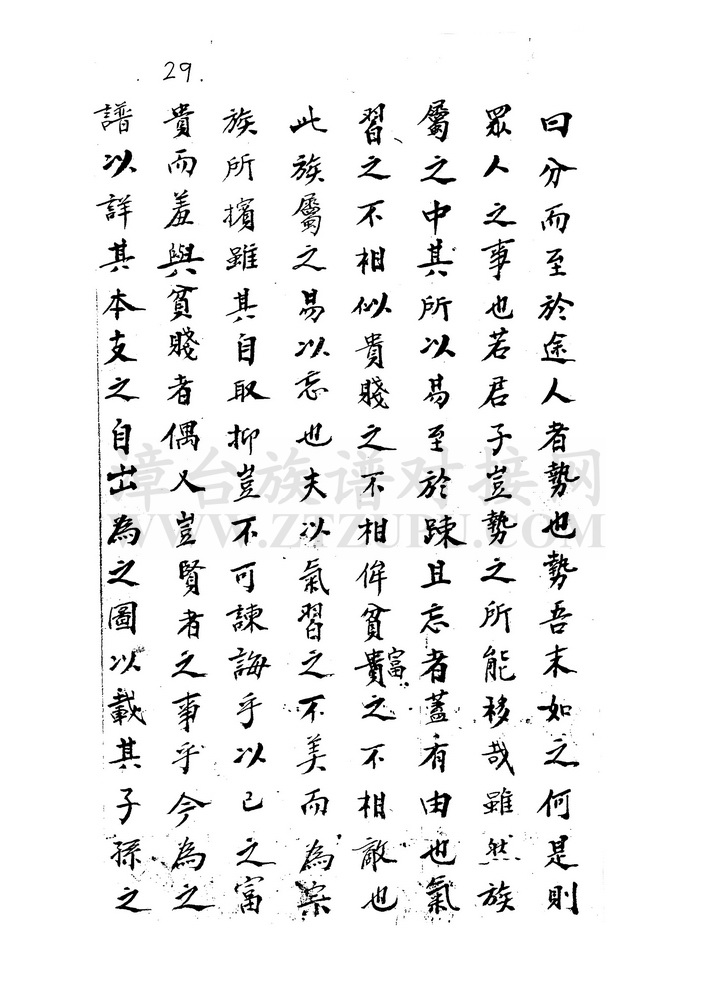 29.
曰分而至於途人者勢也勢吾末如之何是則
眾人之事也若君子豈勢之所能移哉雖然族
屬之中其所以易至於踈且忘者蓋有由也氣
習之不相似貴賤之不相侔貧貴富之不相敵也
此族屬之易以忘也夫以氣習之不美而為宗
族所擯雖其自取抑豈不可諫誨乎以己之富
貴而羞與貧賤者偶又豈賢者之事乎今為之
譜以詳其本支之自出為之圖以載其子孫之
漳台族谱对接网
WWW.ZTZUPU.COM